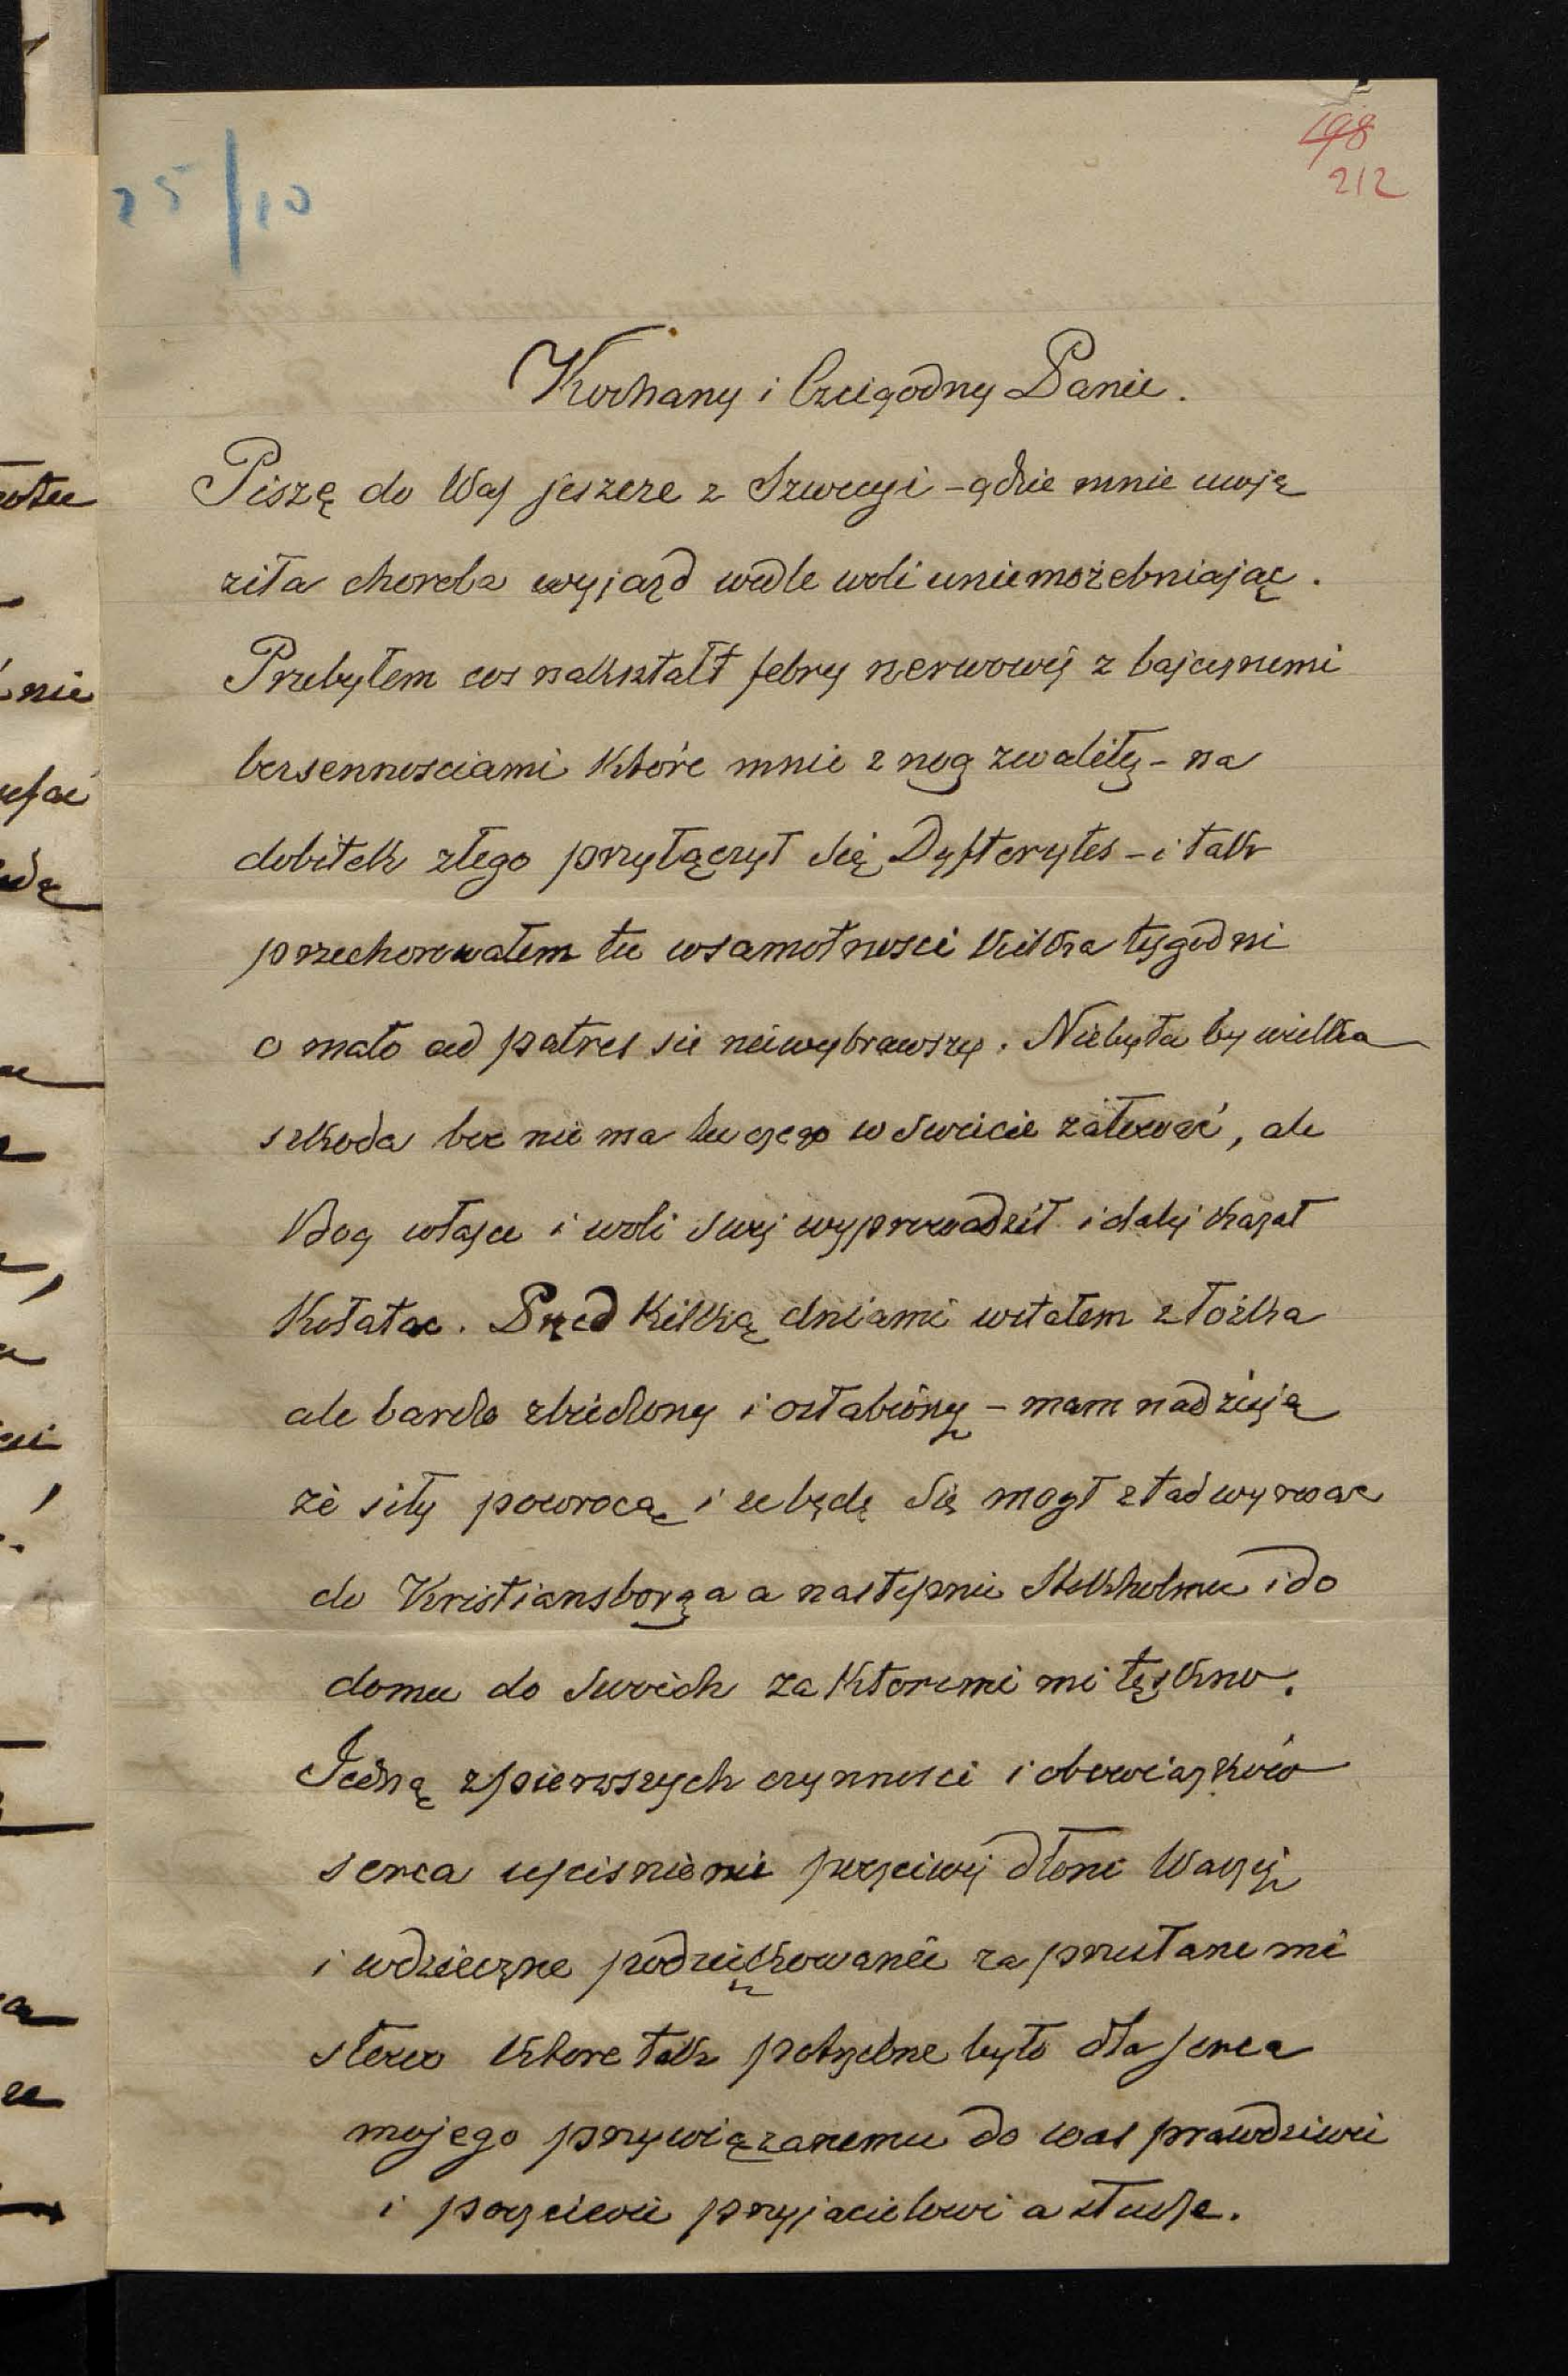 198
212
25/10
Kochany i Czcigodny Panie.
Piszę do Was jeszcze z Szwecyi - gdzie mnie uwię
ziła choroba wyjazd wedle woli uniemożebniając.
Przebyłem cos nakształt febry nerwowéj z bajecznemi
bezsennosciami które mnie z nog zwaliły - na
dobitek złego przyłączył się Dyfterytes - i tak
przechorowałem tu w samotnosci kilka tygodni
o mało ad patres sie niewybrawszy. Niebyła by wielka
szkoda boc nie ma tu czego w swiecie żałować, ale
Bog w łasce i woli swej wyprowadził i dalej kazał
Kołatac. Przed kilką dniami wstałem z łożka
ale bardo zbiedzony i osłabiony - mam nadzieję
że siły powrocą i że będę się mogł ztad wyrwac
do Kristiansborga a następnie Stokholmu i do
domu do swoich za ktoremi mi tęskno.
Jedną z pierwszych czynnosci i obowiązków
serca uscisnienie poczciwej dłoni Waszej
i wdzieczne podziękowanie za przesłane mi
słowo ktore tak potrzebne było dla serca
mojego przywiązanemu do was prawdziwie
i poczciwie przyjacielowi a słudze.